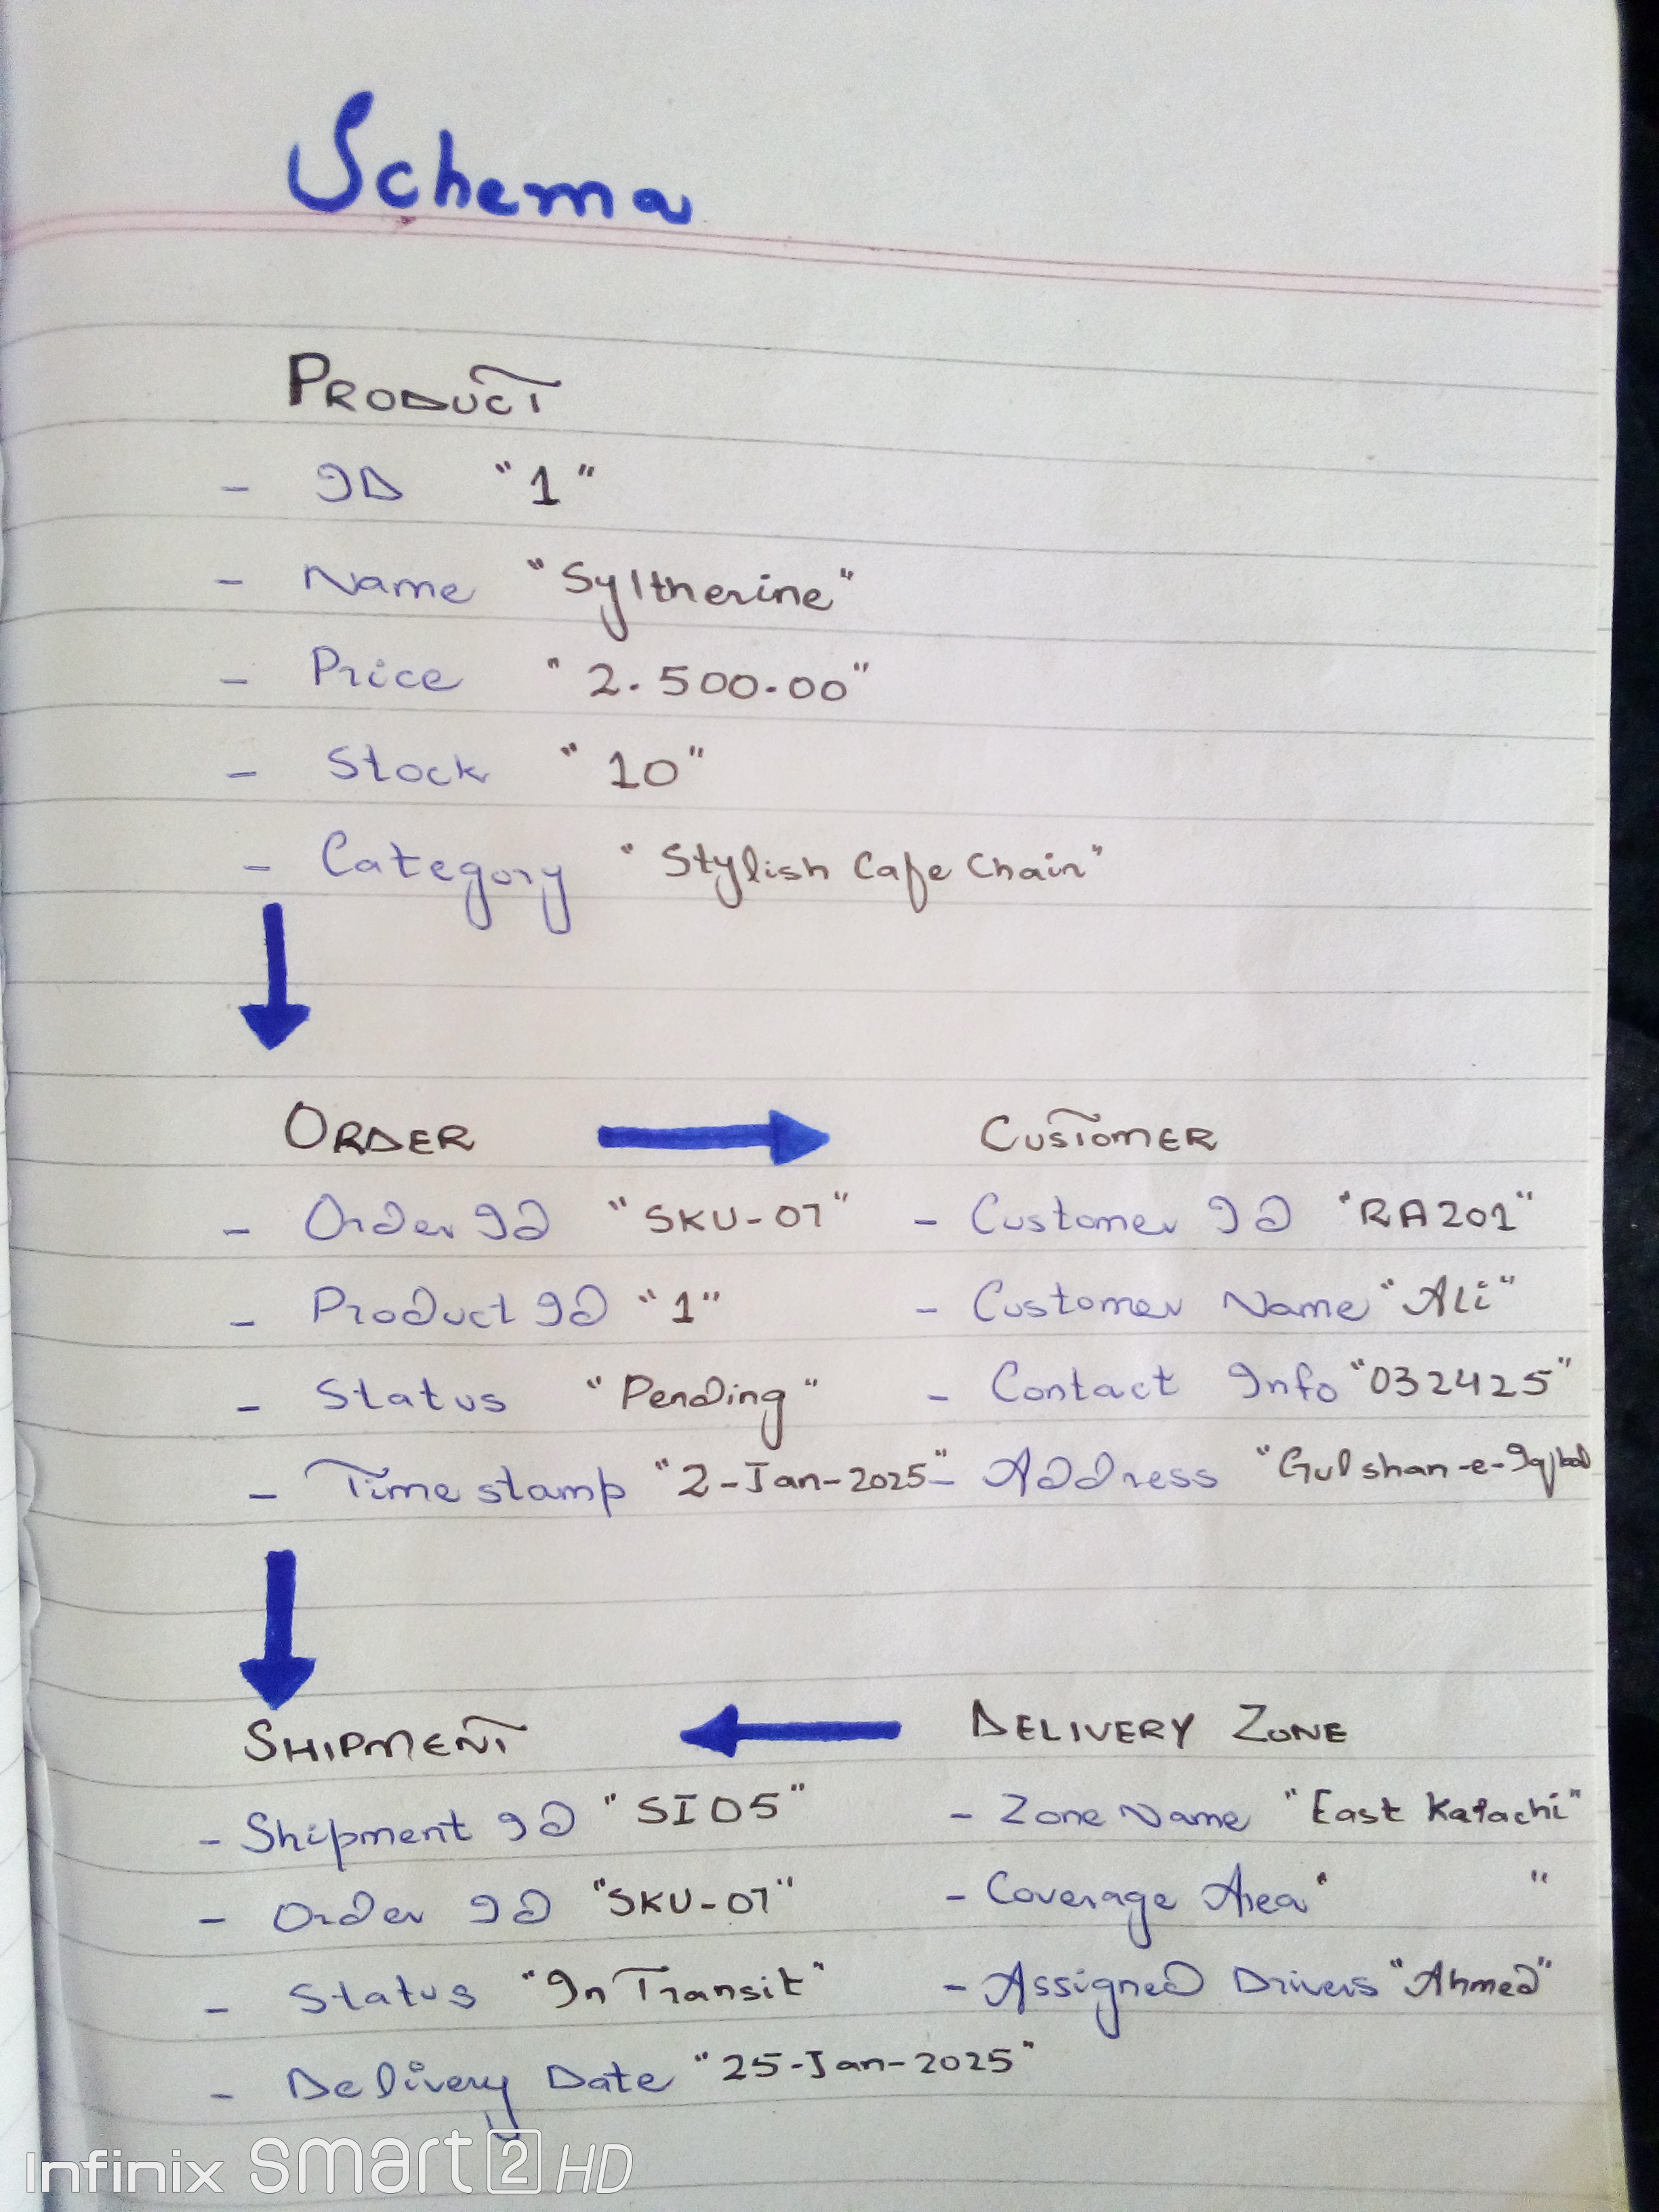 Schema
PRODUCT
- ID "1"
- Name "Syltherine"
- Price "2.500.00"
- Stock "10"
- Category "Stylish Cafe Chair"
ORDER
- Order ID "SKU-07"
- Product ID "1"
- Status "Pending"
- Timestamp "2-Jan-2025"
CUSTOMER
- Customer ID "RA201"
- Customer Name "Ali"
- Contact Info "032425"
- Address "Gulshan-e-Iqbal
SHIPMENT
- Shipment ID "SI05"
- Order ID "SKU-07"
- Status "In Transit"
- Delivery Date "25-Jan-2025"
DELIVERY ZONE
- Zone Name "East Karachi"
- Coverage Area " "
- Assigned Drivers "Ahmed"
Infinix smart 2 HD